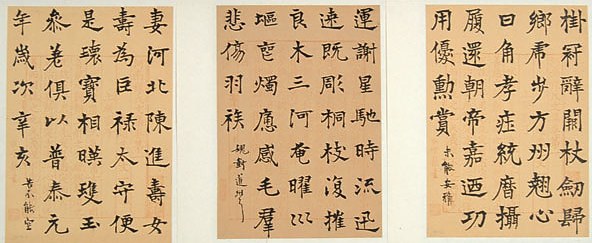 掛冠辭闕杖劒歸
鄉虎步方州翹心
日角孝莊統曆攝
履還朝帝嘉迺功
用優勳賞
未能安穩
運謝星馳時流迅
速既彫桐枝復摧
良木三河奄曜巛
燭應感毛群
悲傷羽族
妻河北陳進壽女
壽為巨祿太守便
是瓌寶相暎瓊玉
叅差俱以普泰元
年歲次辛亥